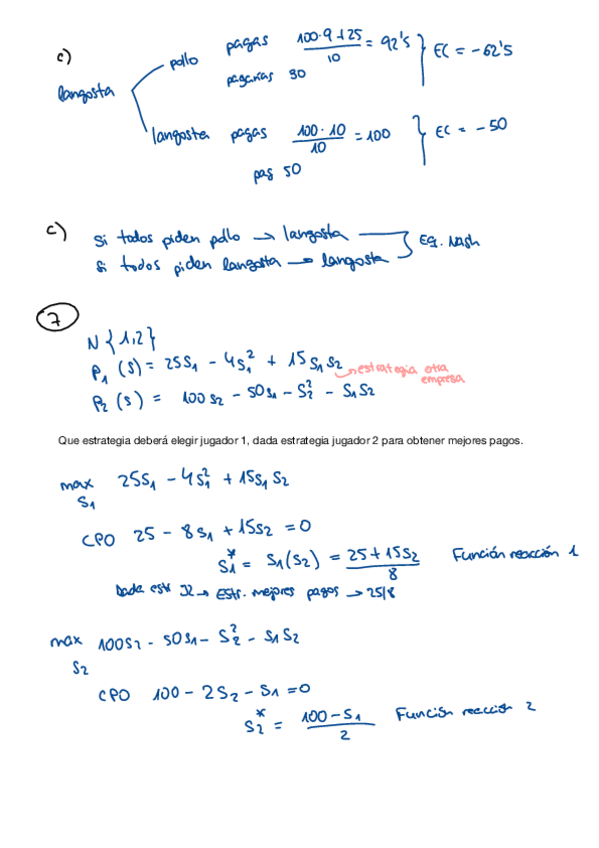 c)
langosta
pollo pagas 100·9+25/10 = 92'5 } EC = -62'5
pagarías 30
langosta pagas 100·10/10 = 100 } EC = -50
pag 50
c) Si todos piden pollo → langosta
si todos piden langosta → langosta } EQ. Nash
7
N {1,2}
P₁ (S) = 25S₁ - 4S₁² + 15 S₁ S₂ → estrategia otra empresa
P₂ (S) = 100 S₂ - 50 S₁ - S₂² - S₁ S₂
Que estrategia deberá elegir jugador 1, dada estrategia jugador 2 para obtener mejores pagos.
max 25S₁ - 4S₁² + 15S₁ S₂
S₁
CPO 25 - 8S₁ + 15S₂ = 0
S₁* = S₁(S₂) = 25+15S₂/8 Función reacción 1
Dada estr J2 → Estr. mejores pagos → 25/8
max 100S₂ - 50S₁ - S₂² - S₁ S₂
S₂
CPO 100 - 2S₂ - S₁ = 0
S₂* = 100-S₁/2 Función reacción 2